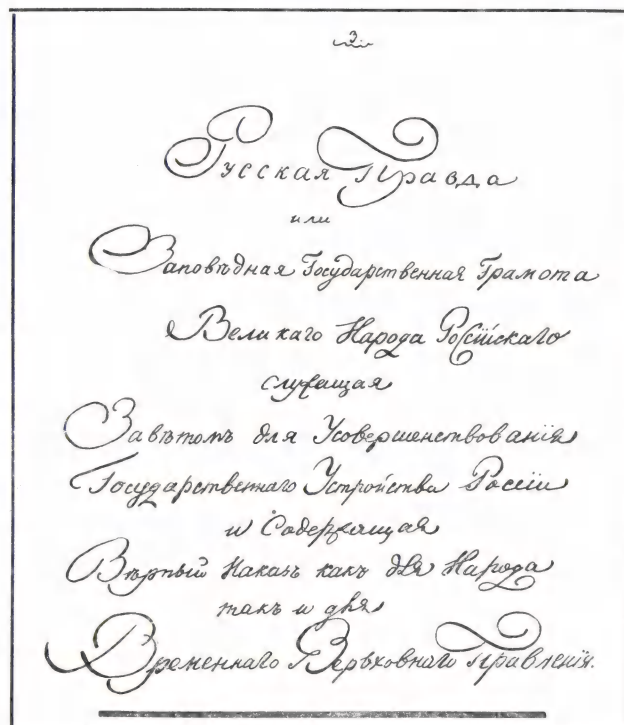 3
Русская Правда
или
Заповѣдная Государственная Грамота
Великаго Народа Россійскаго
служащая
Завѣтомъ для Усовершенствованія
Государственнаго Устройства Россіи
и Содержащая
Вѣрный Наказъ какъ для Народа
такъ и для
Временнаго Верьховнаго Правленія.